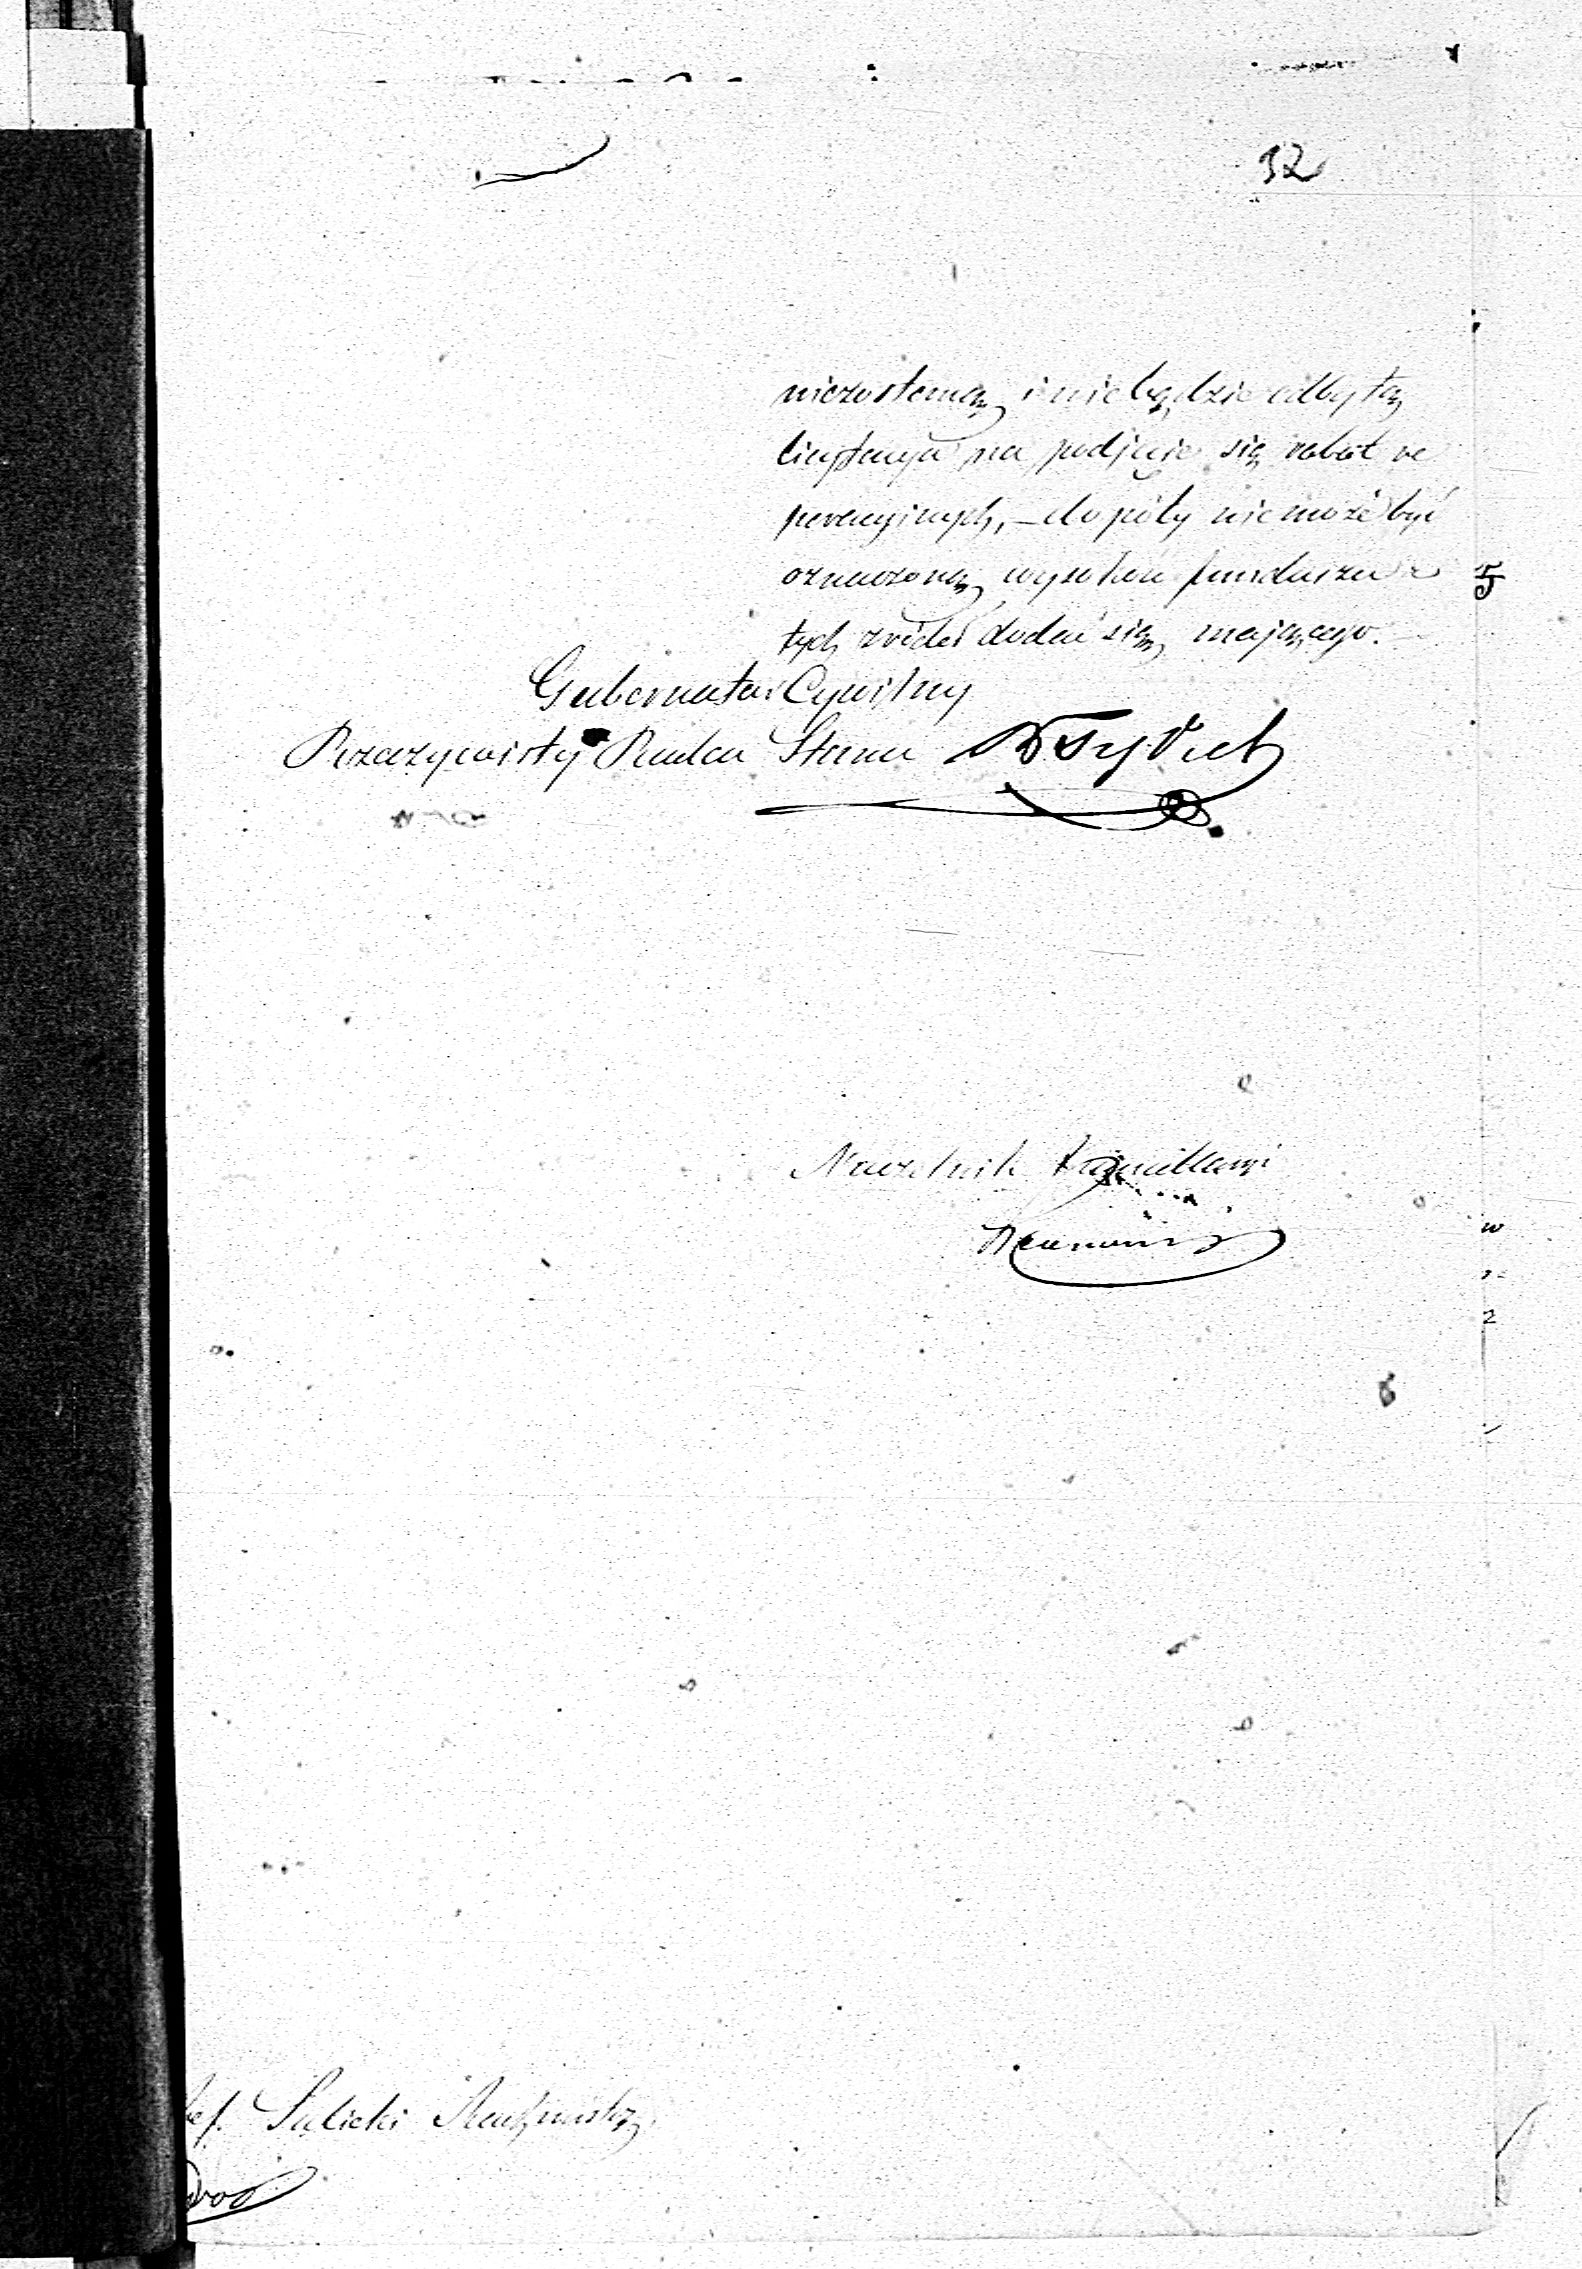 32
niezostaną i niebędzie odbytą
licytacya na podjęcie się robot re
peracyinych, – dopóty niemoże być
oznaczoną wysokość funduszu z
tych źródeł dodać się mającego.
Gubernator Cywilny
Rzeczywisty Radca Stanu
Naczelnik Kancellaryi
Sulicki